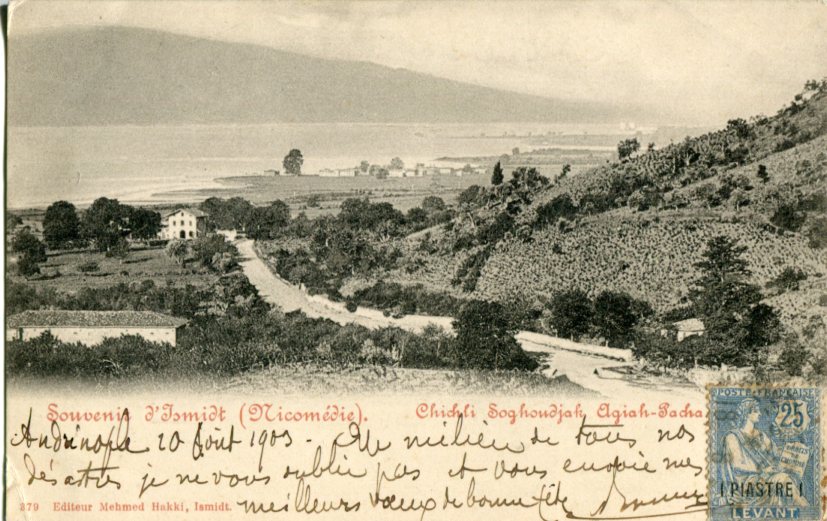 Souvenir d'Ismidt (Nicomédie). Chichli Soghoudjak Agiah-Pacha
Andrinople 10 Août 1903 - Au milieu de tous nos
désastres je ne vous oublie pas et vous envoie mes
meilleurs vœux de bonne fête
379 Editeur Mehmed Hakki, Ismidt.
POSTE FRANÇAISE
25
1 PIASTRE 1
LEVANT